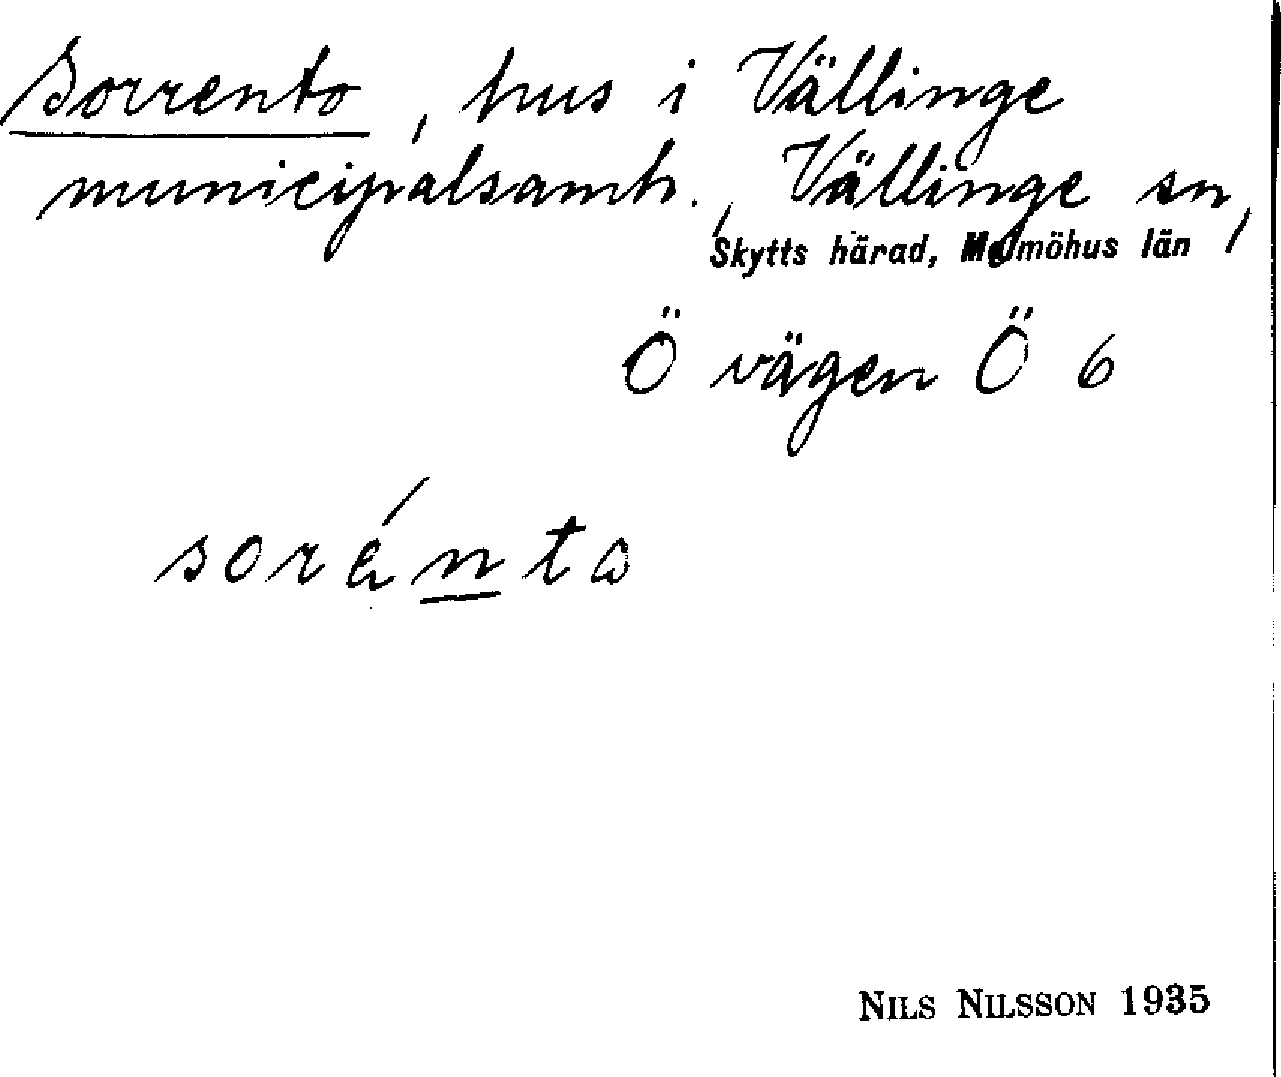 Sorrento, hus i Vällinge
municipalsamh., Vällinge sn,
Skytts härad, Malmöhus län
Ö vägen Ö 6
soränta
NILS NILSSON 1935